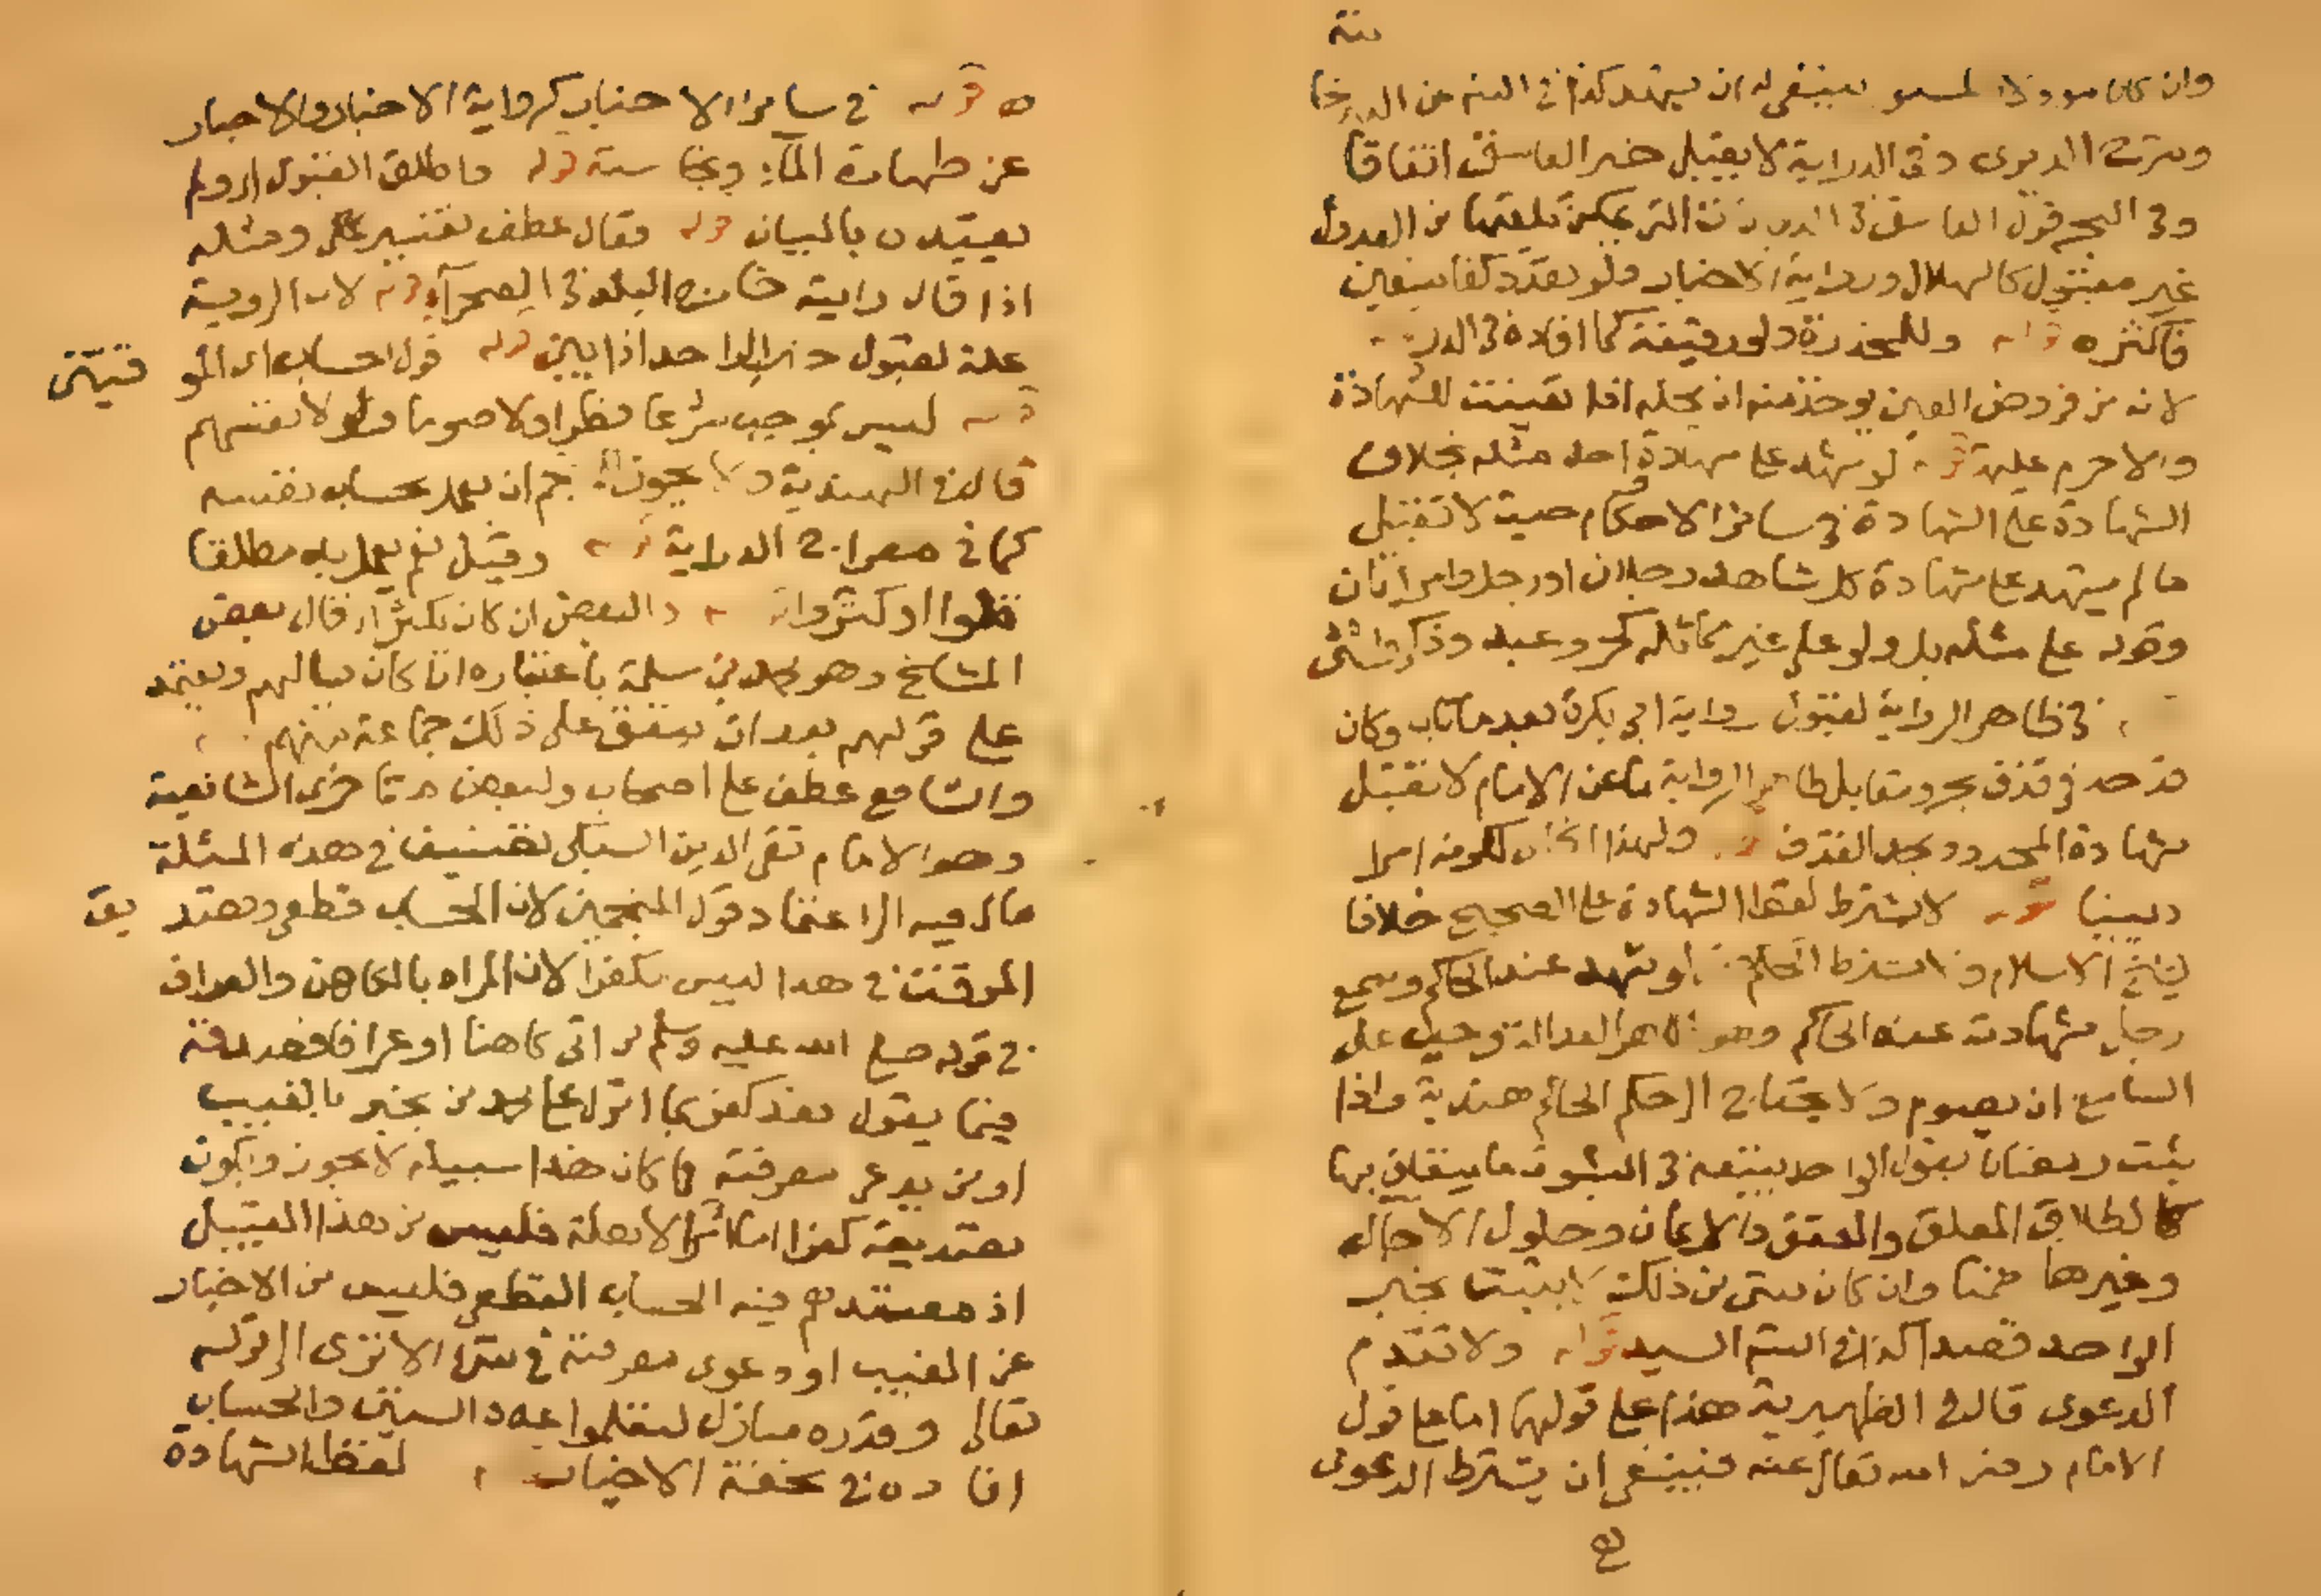 وان كان مورودا ينبغى له ان يشهد كذا فى
وفى الدراية لا يقبل خبر الفاسق اتفاقا
وفى البحر قول الفاسق فى الديانات التى يمكن تلقيها من العدول
غير مقبول كالهلال ورواية الاخبار ولو تعدد كفاسقين
فاكثر ه قوله وللمخدرة ولو رقيقة كما افاده فى الدر
لانه من فروض العين يوخذ منه ان محله اذا تعينت للشهادة
والا حرم عليه قوله لو شهد على شهادة احد مثله بخلاف
الشهادة على الشهادة فى سائر الاحكام حيث لا تقبل
ما لم يشهد على شهادة كل شاهد رجلان او رجل وامراتان
وقوله على مثله بل ولو على غير مماثله كحر وعبد وذكر وانثى
فى ظاهر الرواية لقبول رواية ابى بكرة بعد ما تاب وكان
قد حد فى قذف بحر ومقابل ظاهر الرواية ما عن الامام لا تقبل
شهادة المحدود بحد القذف قوله ولهذا لكونه امرا
دينيا قوله لا يشترط لفظ الشهادة على الصحيح خلافا
لشيخ الاسلام ولا اشترط الحاكم او شهد عند الحاكم وسمع
رجل شهادته عند الحاكم وهو ظاهر العدالة وجب على
السامع ان يصوم ولا يحتاج الى حكم الحاكم هندية واذا
ثبت رمضان بقول الواحد يتبعه فى الثبوت ما يتعلق بها
كالطلاق المعلق والعتق والايمان وحلول الاجال
وغيرها ضمنا وان كان شئ من ذلك لا يثبت بخبر
الواحد قصدا كذا فى السيد قوله ولا تقدم
الدعوى قال فى الظهيرية هذا على قولهما اما على قول
الامام رضى الله تعالى عنه فينبغى ان يشترط الدعوى
ه قوله فى سائر الاخبار كرواية الاخبار والاخبار
عن طهارة الماء ونجاسته قوله واطلق القبول اى ولم
يقيده بالبيان قوله وقال عطف تفسير ومثله
اذا قال رايته خارج البلد فى الصحراء قوله لان الروية
علة لقبول خبر الواحد اذا بين قوله قول احساب اى المو
قتين
قوله ليس بموجب شرعا فطرا ولا صوما ولو لانفسهم
قال فى الهندية ولا يجوز للمنجم ان يعمل بحساب نفسه
كما فى معراج الدراية قوله وقيل نعم يعمل به مطلقا
قلوا او كثروا قوله والبعض ان كان يكثر اى قال بعض
المشايخ وهو محمد بن سلمة باعتباره اذا كان يسالهم ويعتمد
على قولهم بعد ان يتفق على ذلك جماعة منهم
والشافع عطف على اصحاب ولبعض متاخرى الشافعية
وهو الامام تقى الدين السبكى تصنيف فى هذه المسئلة
مال فيه الى اعتماد قول المنجمين لان الحساب قطعى وتصد
يق
الموقت فى هذا ليس كفرا لان المراد بالكاهن والعراف
فى قوله صلى الله عليه وسلم من اتى كاهنا او عرافا فصدقه
فيما يقول فقد كفر بما انزل على محمد من يخبر بالغيب
او من يدعى معرفته وما كان هذا سبيله لا يجوز ويكون
تصديقه كفرا اما امر الاهلة فليس من هذا القبيل
اذ معتمدهم فيه الحساب القطعى فليس من الاخبار
عن الغيب او دعوى معرفته فى شئ الا ترى الى قوله
تعالى وقدره منازل لتعلموا عدد السنين والحساب
افاده فى تحفة الاخيار لفظ الشهادة